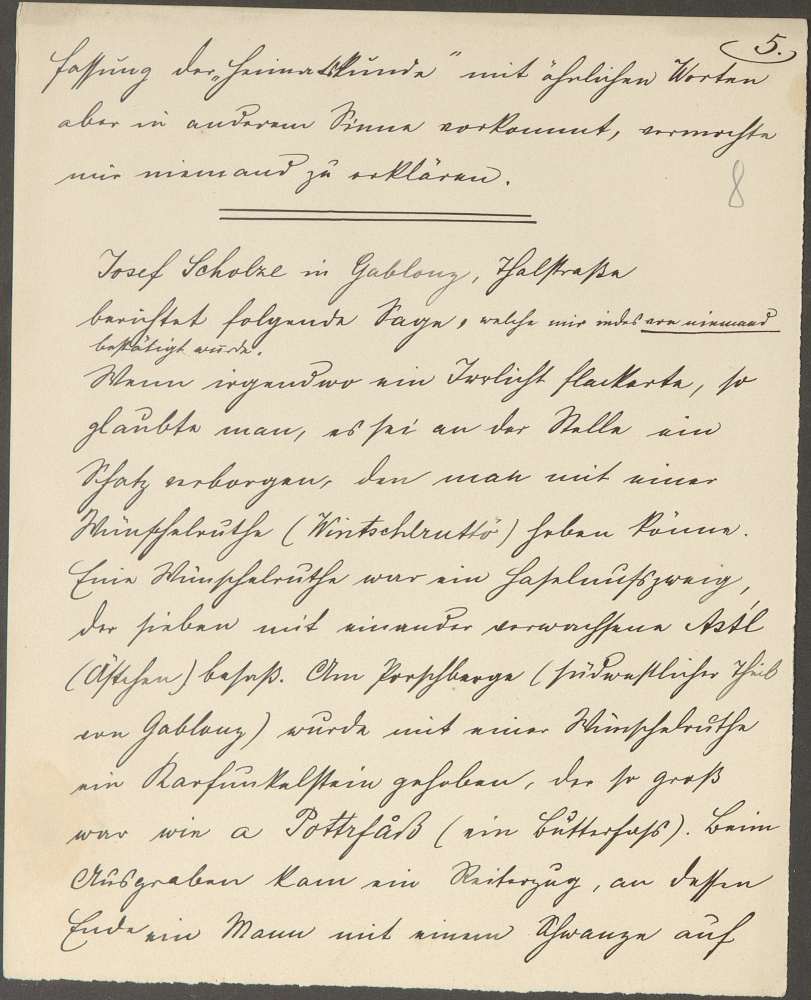 5.
fassung der „Heimatskunde“ mit ähnlichen Worten
aber in anderem Sinne vorkommt, vermochte
mir niemand zu erklären.
8
Josef Scholze in Gablonz, Thalstraße
berichtet folgende Sage, welche mir indes von niemand
bestätigt wurde.
Wenn irgendwo ein Irrlicht flackerte, so
glaubte man, es sei an der Stelle ein
Schatz verborgen, den man mit einer
Wünschelruthe (Wintschlruttō) heben könne.
Eine Wünschelruthe war ein Haselnußzweig,
der sieben mit einander verwachsene Astl
(Ästchen) besaß. Am Porschberge (südwestlicher Theil
von Gablonz) wurde mit einer Wünschelruthe
ein Karfunkelstein gehoben, der so groß
war wie a Pottrfåß (ein Butterfass). Beim
Ausgraben kam ein Reiterzug, an dessen
Ende ein Mann mit einem Schwanze auf